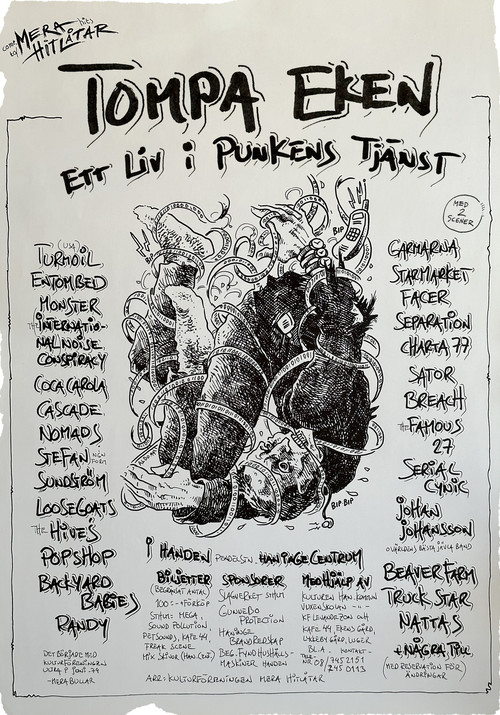 MERA
HITLÅTAR
TOMPA EKEN
ETT LIV i PUNKENS TJÄNST
MED
2
SCENER
BIP
BIP BIP
(USA)
TURMOIL
ENTOMBED
MONSTER
THE INTERNATIO-
NAL NOISE
CONSPIRACY
COCA CAROLA
CASCADE
NOMADS
STEFAN
SUNDSTRÖM
LOOSEGOATS
THE HIVES
POPSHOP
BACKYARD
BABIES
RANDY
DET BÖRJADE MED
KULTURFÖRENINGEN
ULTRA
-MERA BULLAR
GARMARNA
STARMARKET
FACER
SEPARATION
CHARTA 77
SATOR
BREACH
THE FAMOUS
27
SERIAL
CYNIC
JOHAN
JOHANSSON
O VÄRLDENS BÄSTA JÄVLA BAND
BEAVER FARM
TRUCK STAR
NATTAS
+ NÅGRA TILL
(MED RESERVATION FÖR)
ÄNDRINGAR
i HANDEN HANINGE CENTRUM
BILJETTER
(BEGRÄNSAT ANTAL)
100:- +FÖRKÖP
STHLM: MEGA,
SOUND POLLUTION
PET SOUNDS, KAFE 44,
FREAK SCENE
MIX SKIVOR (HAN. CENT)
SPONSORER
SLAGVERKET STHLM
GUNNEBO
PROTECTION
HANINGE
BRANDREDSKAP
BEG. FYND HUSHÅLLS-
MASKINER HANDEN
MED HJÄLP AV
KULTUREN HAN. KOMMUN
VUXENSKOLAN -"-
KF LEVANDE ZOO OCH
KAFE 44, EKENS GÅRD,
LUGER
BL.A. KONTAKT-
TEL:
NR 08/745 2151
745 0113
ARR: KULTURFÖRENINGEN MERA HITLÅTAR